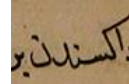 اكسندن بر